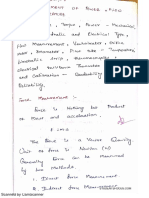 EMENT OF FORCE, TORQ
, Torque, Power - Mechanical,
draulic and Electrical Type,
Flow Measurement, Venturimeter, Orifice
meter, Rotameter, Pitot tube - Temperature,
Bimetallic Strip, Thermocouples,
electrical resistance Thermometer
and Calibration - Readability and
Reliability.
Force Measurement :-
Force is Nothing but Product
of Mass and acceleration.
The Force is a Vector Quantity
Unit of force is Newton (N)
Generally Force can be Measured
by two methods.
1. Direct Force Measurement
2. Indirect Force Measurement
Scanned by CamScanner